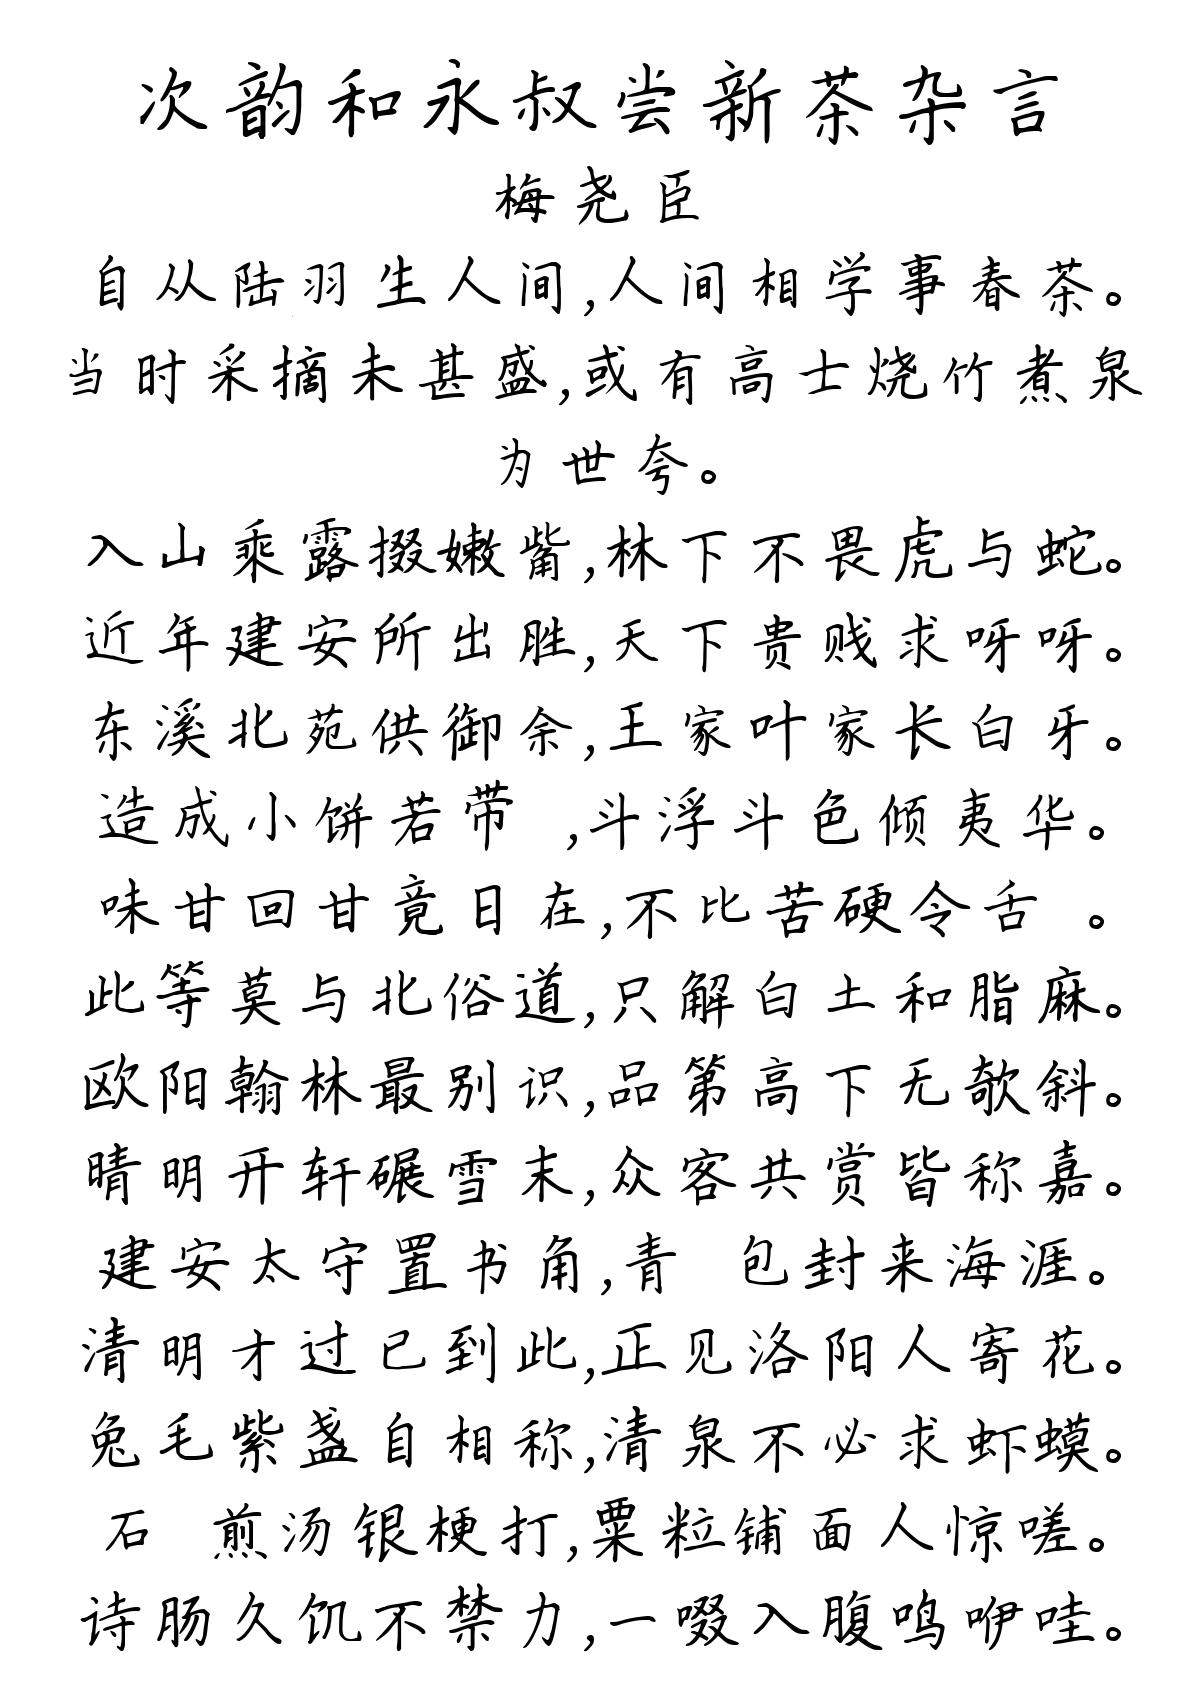 次韵和永叔尝新茶杂言
梅尧臣
自从陆羽生人间,人间相学事春茶。
当时采摘未甚盛,或有高士烧竹煮泉
为世夸。
入山乘露掇嫩觜,林下不畏虎与蛇。
近年建安所出胜,天下贵贱求呀呀。
东溪北苑供御余,王家叶家长白牙。
造成小饼若带 ,斗浮斗色倾夷华。
味甘回甘竟日在,不比苦硬令舌 。
此等莫与北俗道,只解白土和脂麻。
欧阳翰林最别识,品第高下无欹斜。
晴明开轩碾雪末,众客共赏皆称嘉。
建安太守置书角,青 包封来海涯。
清明才过已到此,正见洛阳人寄花。
兔毛紫盏自相称,清泉不必求虾蟆。
石 煎汤银梗打,粟粒铺面人惊嗟。
诗肠久饥不禁力,一啜入腹鸣咿哇。